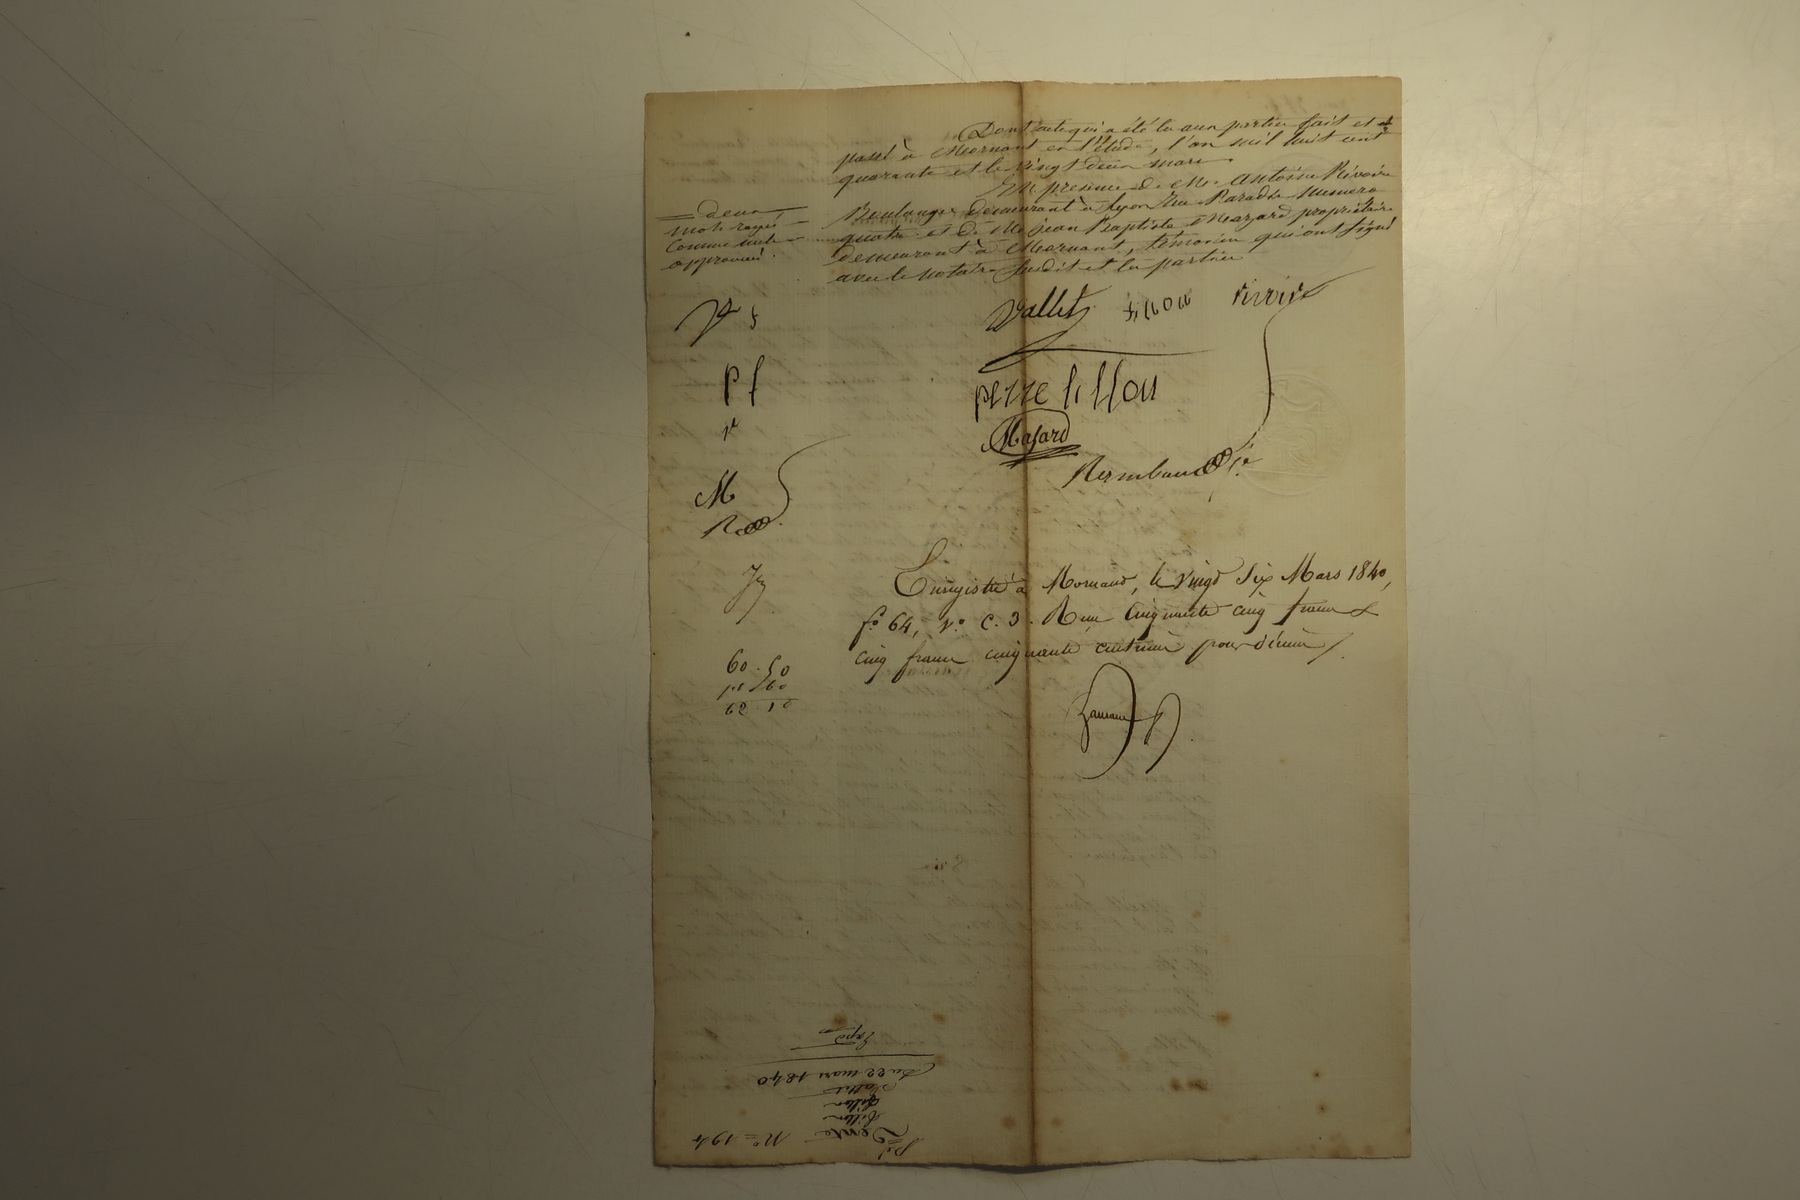 Dont acte qui a été lu aux parties fait et +
passé à Mornant en l'étude, l'an mil huit cent
quarante et le vingt deux mars.
En présence de Mr. Antoine Rivoire
Boulanger demeurant à Lyon rue Paradis numéro
quatre et de Mr. Jean Baptiste Mazard propriétaire
demeurant à Mornant, témoins qui ont signé
avec le notaire susdit et les parties
= deux
mots rayés
comme nuls
approuvés.
Vallet fillon rivoire
pierre fillon
Masard
V f
p f
r
M
R
Enregistré à Mornand, le vingt six Mars 1840,
fo. 64, vo. C. 3. Reçu Cinquante cinq francs &
cinq francs cinquante centimes pour décime /.
60 . 50
1 . 60
62 10
No = 194
Vente
fillon
fillon
Vallet
Du 22 mars 1840
Expd